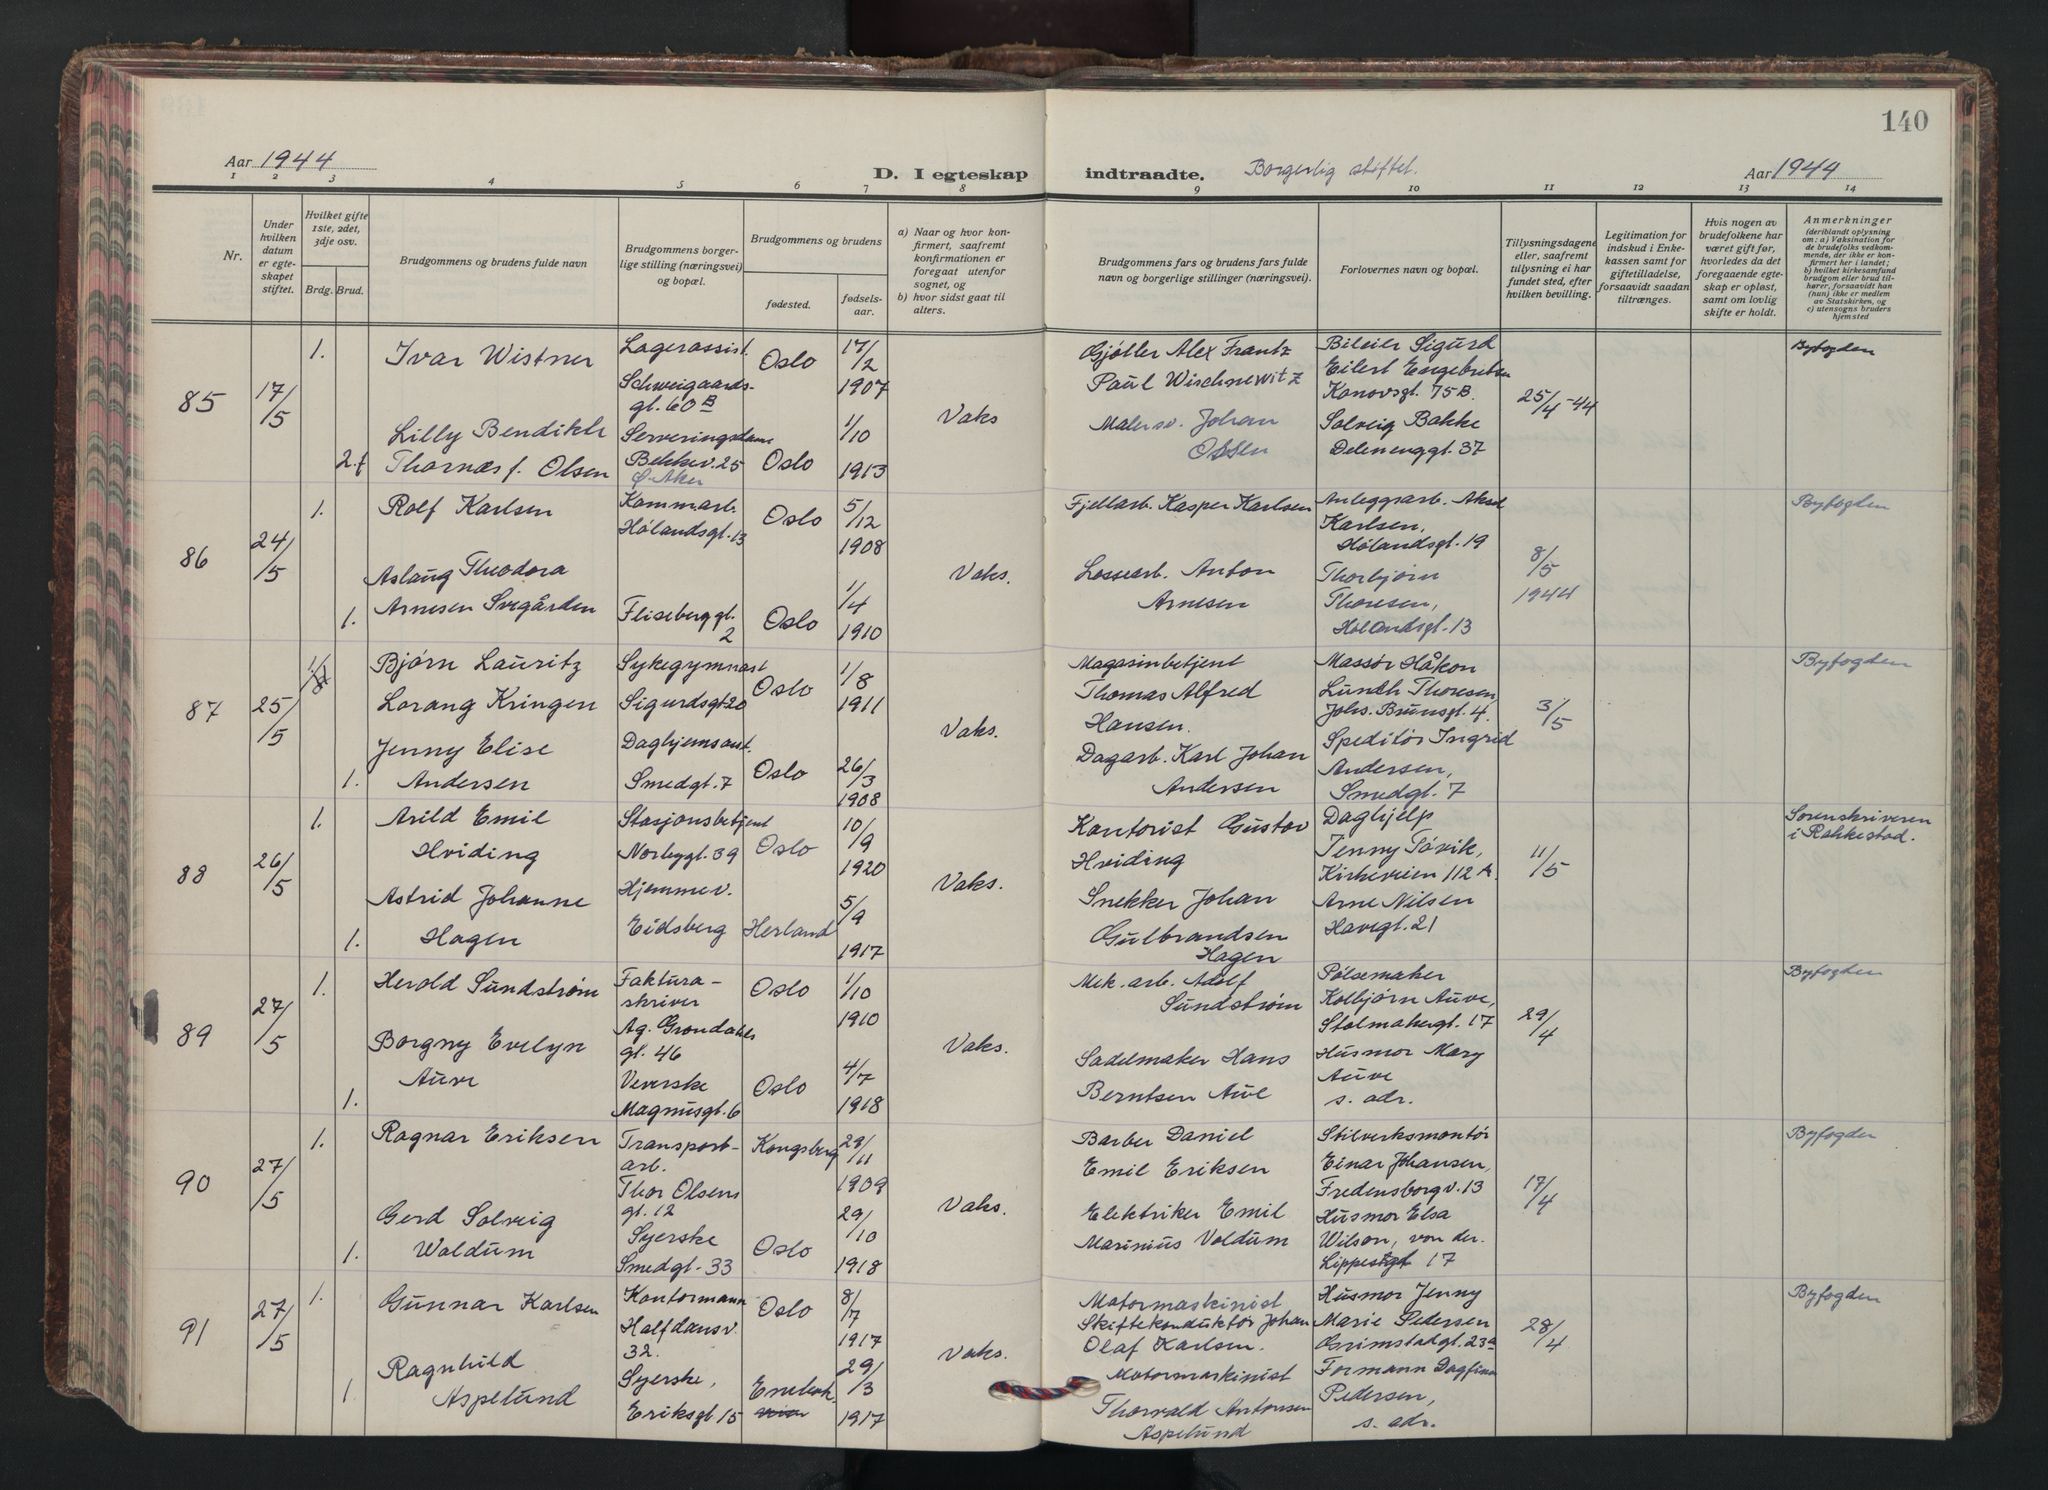 140
Aar 1944
D. I egteskap indtraadte.
Borgerlig stiftet.
Aar 1944
1 2 3 4 5 6 7 8 9 10 11 12 13 14
Nr.
Under hvilken datum er egteskapet stiftet.
Hvilket gifte 1ste, 2det, 3dje osv.
Brdg. Brud.
Brudgommens og brudens fulde navn
Brudgommens borgerlige stilling (næringsvei) og bopæl.
Brudgommens og brudens
fødested.
fødselsaar.
a) Naar og hvor konfirmert, saafremt konfirmationen er foregaat utenfor sognet, og
b) hvor sidst gaat til alters.
Brudgommens fars og brudens fars fulde navn og borgerlige stillinger (næringsvei).
Forlovernes navn og bopæl.
Tillysningsdagene eller, saafremt tillysning ei har fundet sted, efter hvilken bevilling.
Legitimation for indskud i Enkekassen samt for giftetilladelse, forsaavidt saadan tiltrænges.
Hvis nogen av brudefolkene har været gift før, hvorledes da det foregaaende egteskap er opløst, samt om lovlig skifte er holdt.
Anmerkninger
(deriblandt oplysning om: a) Vaksination for de brudefolks vedkommende, der ikke er konfirmert her i landet; b) hvilket kirkesamfund brudgom eller brud tilhører, forsaavidt han (hun) ikke er medlem av Statskirken, og c) utensogns bruders hjemsted
85
17/5
1.
Ivar Wistner
Lagerassist.
Schweigaardsgt. 60 B
Oslo
17/2
1907
2.
Lilly Bendikte
Thornæs f. Olsen
Serveringsdame
Bekkev. 25
Ø. Aker
Oslo
1/10
1913
Vaks
Gjøtler Alex Frantz
Paul Wischnewitz
Malersv. Johan
Olsen
Bileier Sigurd
Eilert Engebretsen
Kanovsgt. 75 B.
Solveig Bakke
Delenenggt. 37
25/4-44
Byfogden
86
24/5
1.
Rolf Karlsen
Kommarb.
Hølandsgt. 13
Oslo
5/12
1908
1.
Aslaug Theodora
Arnesen Svegården
Fliseberggt.
2
Oslo
1/4
1910
Vaks.
Fjellarb. Kasper Karlsen
Lossearb. Anton
Arnesen
Anleggsarb. Aksel
Karlsen,
Hølandsgt. 19
Thorbjørn
Thoresen,
Hølandsgt. 13
8/5
1944
Byfogden
87
25/5
Bjørn Lauritz
Lorang Kringen
Sykegymnast
Sigurdsgt 20
Oslo
1/8
1911
1.
Jenny Elise
Andersen
Daghjemsast.
Smedgt. 7
Oslo
26/3
1908
Vaks.
Magasinbetjent
Thomas Alfred
Hansen.
Dagarb. Karl Johan
Andersen
Massør Håkon
Lundh Thoresen,
Johs. Brunsgt. 4.
Speditør Ingrid
Andersen,
Smedgt. 7
3/5
Byfogden
88
26/5
1.
Arild Emil
Hviding
Stasjonsbetjent
Norbygt. 39
Oslo
10/9
1920
1.
Astrid Johanne
Hagen
Hjemmev.
Eidsberg
Herland
5/9
1917
Vaks.
Kontorist Gustav
Hviding
Snekker Johan
Gulbrandsen
Hagen
Daghjelp
Jenny Tøvik,
Kirkeveien 112 A.
Arne Nilsen
Havegt. 21
11/5
Sorenskriveren
i Rakkestad.
89
27/5
1.
Herold Sundstrøm
Fakturaskriver
Ag. Grøndahls
gt. 46
Oslo
1/10
1910
1.
Borgny Evelyn
Auve
Veverske
Magnusgt. 6
Oslo
4/7
1918
Vaks.
Mek. arb. Adolf
Sundstrøm
Sadelmaker Hans
Berntsen Auve
Pølsemaker
Kolbjørn Auve,
Stolmakergt. 17
Husmor Mary
Auve
s. adr.
29/4
Byfogden
90
27/5
1.
Ragnar Eriksen
Transport-
arb.
Thor Olsens
gt. 12
Kongsberg
29/11
1909
1.
Gerd Solveig
Waldum
Syerske
Smedgt. 33
Oslo
29/10
1918
Vaks.
Barber Daniel
Emil Eriksen
Elektriker Emil
Marinius Valdum
Stilverksmontør
Einar Johansen,
Fredensborgv. 13
Husmor Elsa
Wilson, von der.
Lippesgt 17
17/4
Byfogden
91
27/5
1.
Gunnar Karlsen
Kontormann
Halfdansv.
32.
Oslo
8/7
1917
1
Ragnhild
Aspelund
Syerske,
Eriksgt 15
Enebak.
29/3
1917
Vaks.
Motormaskinist
Skiftekonduktør Johan
Olaf Karlsen.
Motormaskinist
Thorvald Antonsen
Aspelund
Husmor Jenny
Marie Pedersen
Grimstadgt. 23a
Formann Dagfinn
Pedersen,
s. adr.
28/4
Byfogden